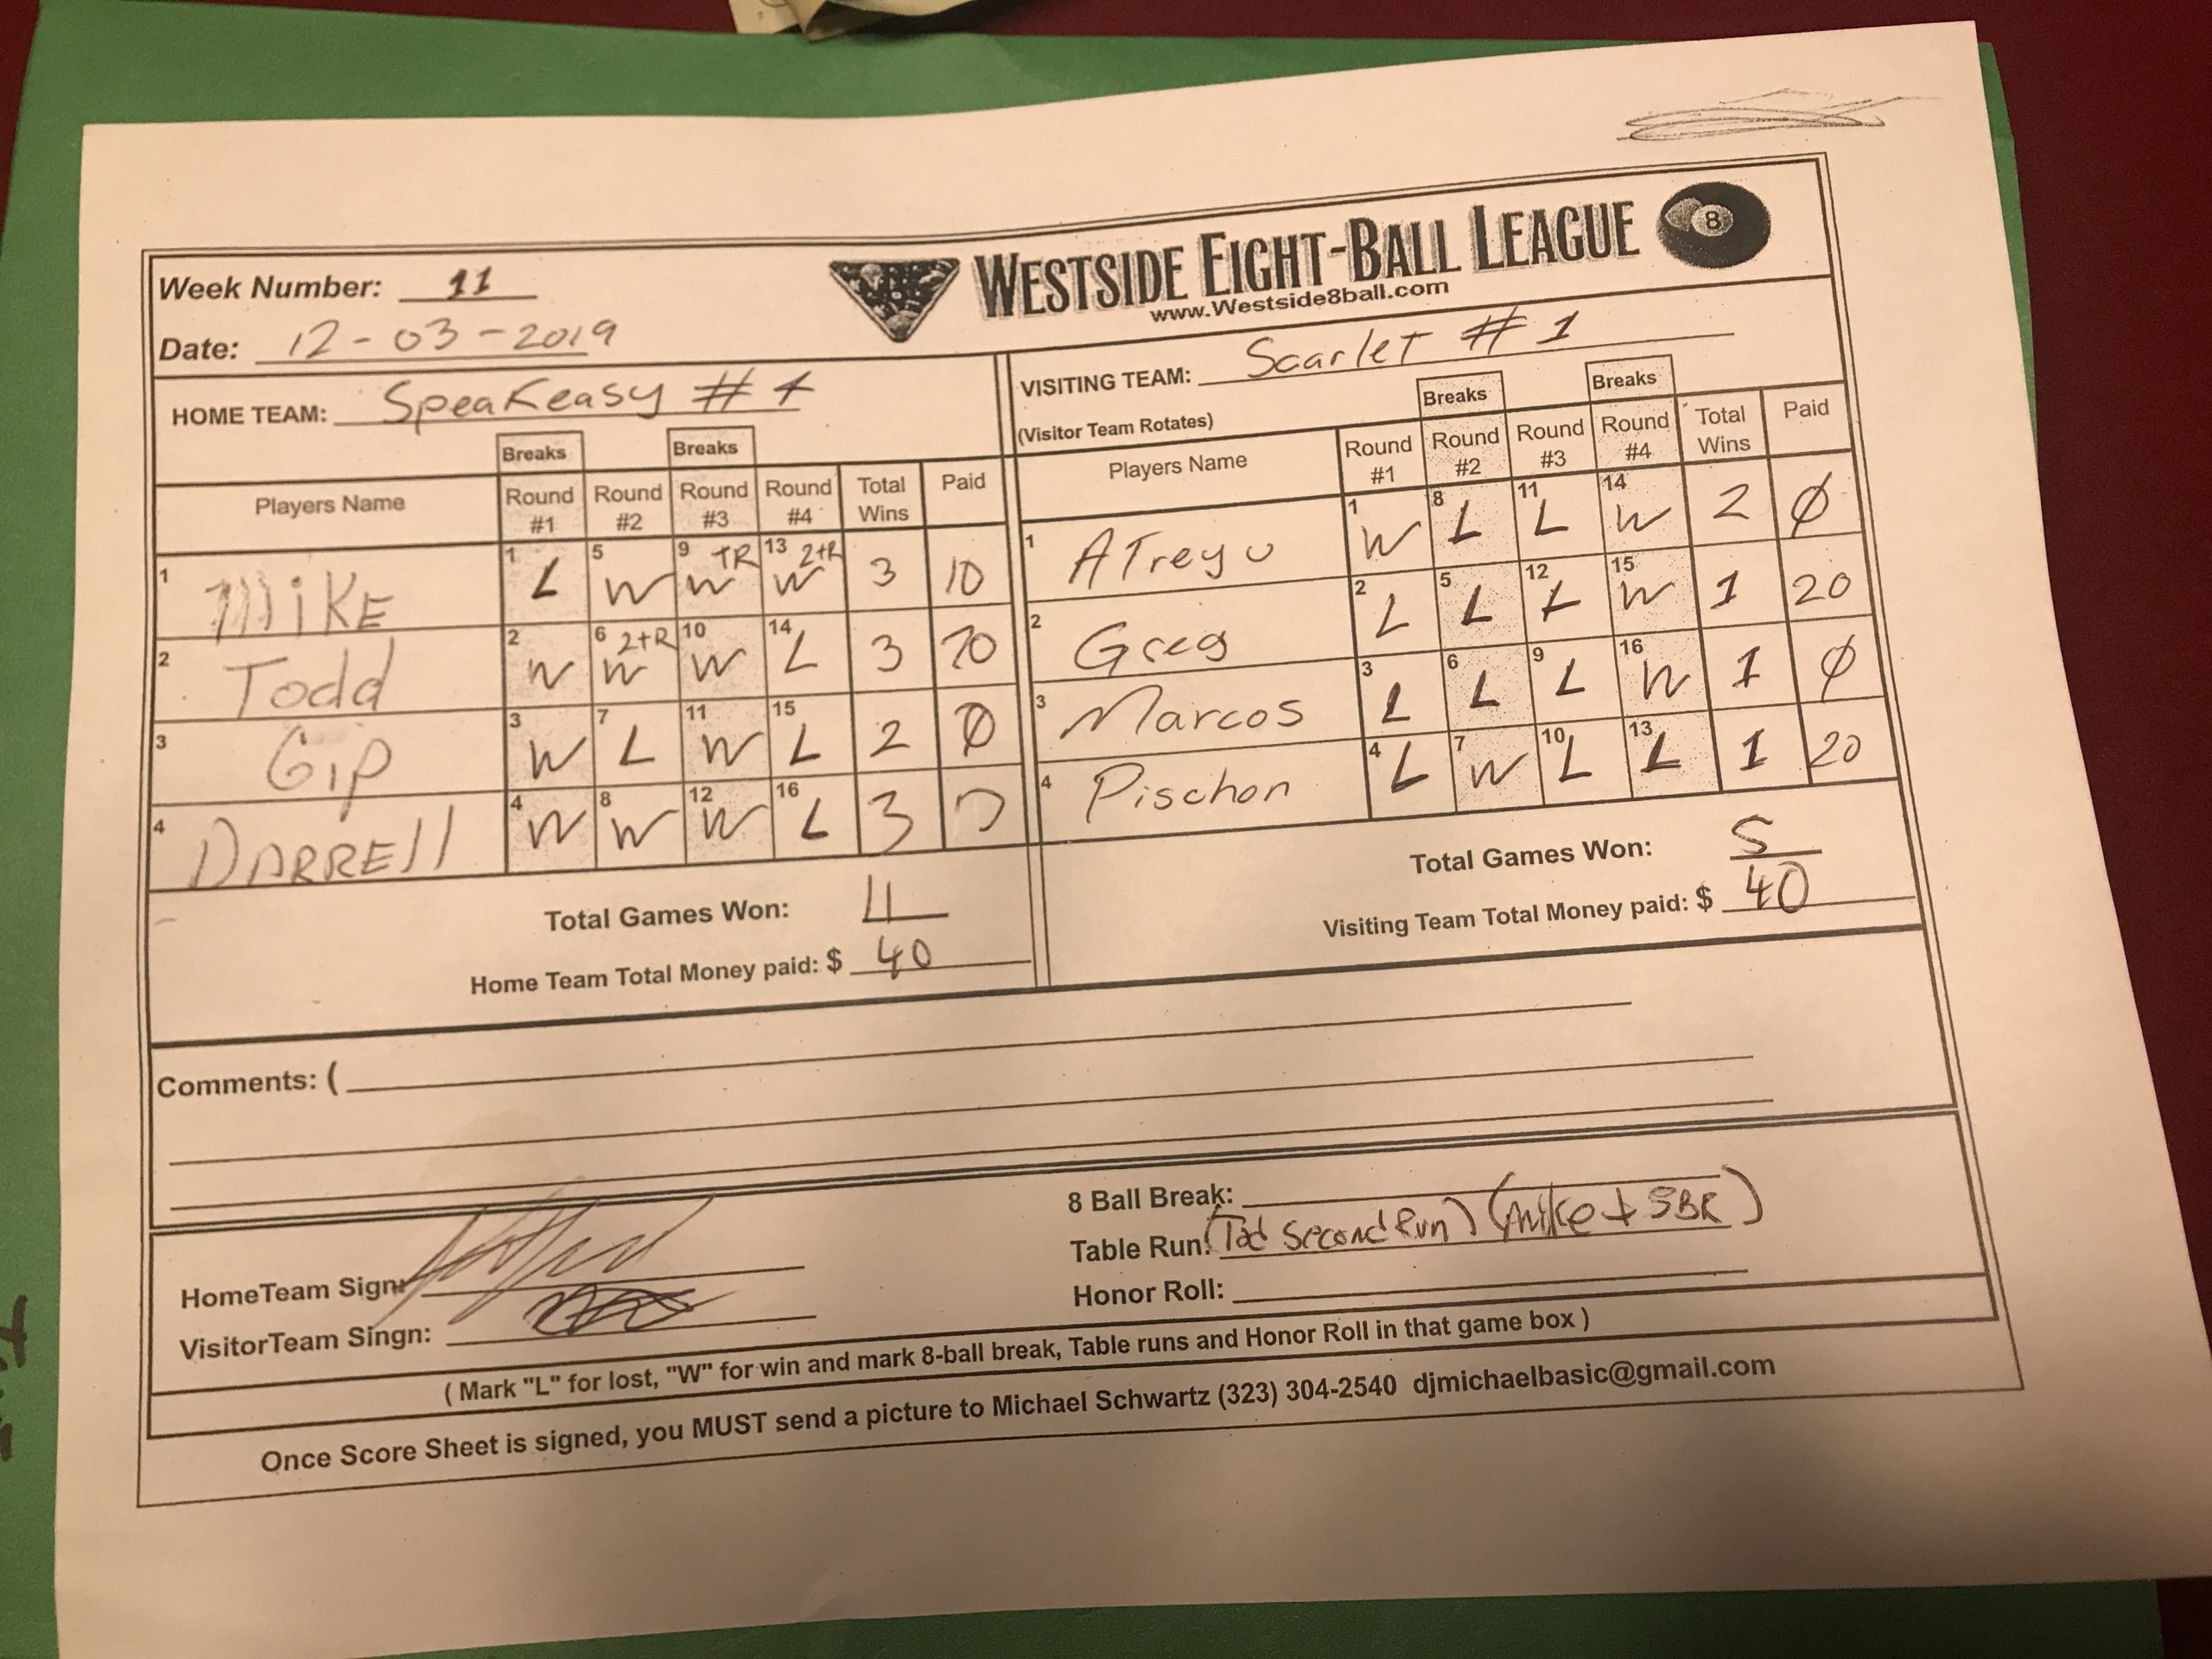 WESTSIDE EIGHT-BALL LEAGUE 8
www.Westside8ball.com
Week Number: 11
Date: 12-03-2019
HOME TEAM: Speakeasy #1
Breaks Breaks
Players Name Round #1 Round #2 Round #3 Round #4 Total Wins Paid
1 MIKE 1 L 5 W 9 TR W 13 2+R W 3 10
2 Todd 2 W 6 2+R W 10 W 14 L 3
3 Gip 3 W 7 L 11 W 15 L 2 Ø
4 DARRELL 4 W 8 W 12 W 16 L 3
Total Games Won: 11
Home Team Total Money paid: $ 40
VISITING TEAM: Scarlet #1
(Visitor Team Rotates)
Breaks Breaks
Players Name Round #1 Round #2 Round #3 Round #4 Total Wins Paid
1 ATreyu 1 W 8 L 11 L 14 W 2 Ø
2 Greg 2 L 5 L 12 L 15 W 1 20
3 Marcos 3 L 6 L 9 L 16 W 1 Ø
4 Pischon 4 L 7 W 10 L 13 L 1 20
Total Games Won: 5
Visiting Team Total Money paid: $ 40
Comments: (
8 Ball Break:
Table Run: (Tod Second Run) (Mike + SBR)
Honor Roll:
HomeTeam Sign:
VisitorTeam Singn:
( Mark "L" for lost, "W" for win and mark 8-ball break, Table runs and Honor Roll in that game box )
Once Score Sheet is signed, you MUST send a picture to Michael Schwartz (323) 304-2540 djmichaelbasic@gmail.com